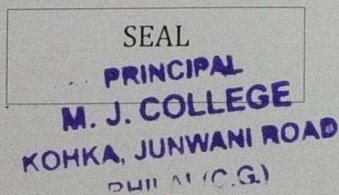 SEAL
PRINCIPAL
M. J. COLLEGE
KOHKA, JUNWANI ROAD
(C.G.)